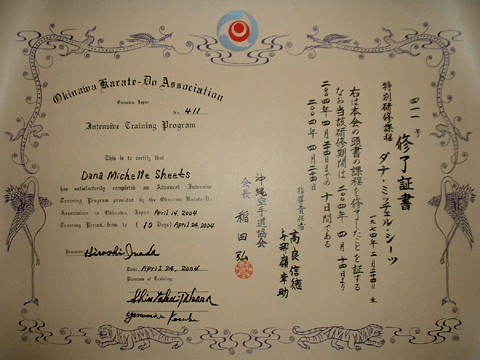 Okinawa Karate-Do Association
Okinawa Japan
No. 411
Intensive Training Program
This is to certify that
Dana Michelle Sheets
has satisfactorily completed an Advanced Intensive
Training Program provided by the Okinawa Karate-Do
Association in Okinawa, Japan April 14, 2004
Training Period: from to (10 Days) April 24, 2004
President: Hiroshi Inada
Date: April 24, 2004
Directors of Training:
四一一号
修了証書
特別研修課程
ダナ・ミッシェル・シーツ
一九七四年二月二十四日生
右は本会の頭書の課程を修了したことを証する
なお当該研修期間は二〇〇四年四月十四日より
二〇〇四年四月二十四日までの十日間である
二〇〇四年四月二十四日
指導責任者
高良信徳
与那嶺幸助
沖縄空手道協会
会長 稲田弘